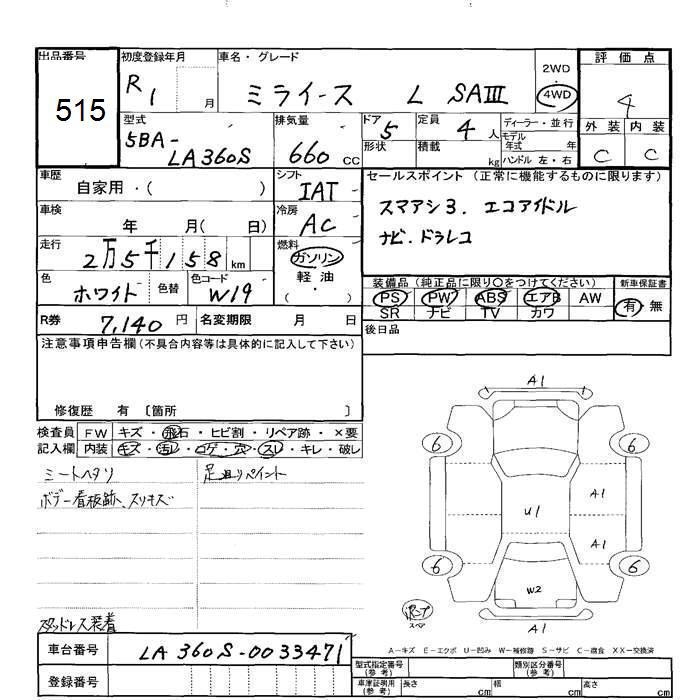 出品番号 初度登録年月 車名・グレード 評価点
515
R1 月 ミライース L SAIII
2WD
4WD
4
型式 排気量 ドア 定員 ディーラー・並行 外装 内装
5BA-
LA360S 660 CC 5 4人
形状 積載 kg
モデル年式 年
ハンドル 左・右
C C
車歴 シフト セールスポイント (正常に機能するものに限ります)
自家用・( ) IAT
スマアシ3. エコアイドル
ナビ.ドラレコ
車検 冷房
年 月( 日) AC
走行 燃料
2万5千158km ガソリン
軽油
・( )
色 色替 色コード
ホワイト W19
装備品 (純正品に限り〇をつけてください) 新車保証書
PS PW ABS エアB AW 有・無
SR ナビ TV カワ
R券 7,140円 名変期限 月 日
後日品
注意事項申告欄(不具合内容等は具体的に記入して下さい)
修復歴 有 〔箇所 〕
検査員 FW キズ・飛石・ヒビ割・リペア跡・×要
記入欄 内装 キズ・汚レ・コゲ・穴・スレ・キレ・破レ
シートヘタリ 足廻りペイント
ボデー看板跡、スリキズ
スタッドレス装着
A1
6 6
A1
U1
A1
6 6
W2
スペア
A1
A-キズ E-エクボ U-凹み W-補修跡 S-サビ C-腐食 XX-交換済
車台番号 LA360S-0033471
登録番号
型式指定番号(参考) 類別区分番号(参考)
車庫証明用(参考) 長さ cm 幅 cm 高さ cm